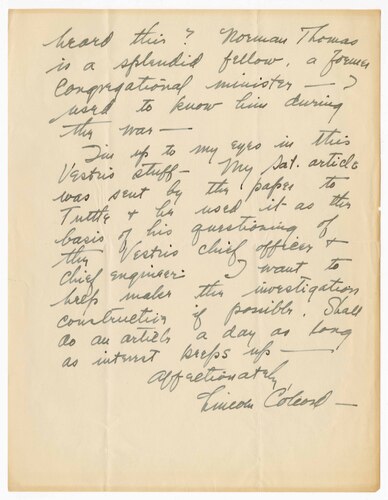 heard this? Norman Thomas
is a splendid fellow, a former
Congregational minister — I
used to know him during
the war —
I'm up to my eyes in this
Vestris stuff — My Sat. article
was sent by the paper to
Tuttle & he used it as the
basis of his questioning of
the Vestris chief officer &
chief engineer. I want to
help make the investigation
constructive if possible. Shall
do an article a day as long
as interest keeps up —
Affectionately
Lincoln Colcord —